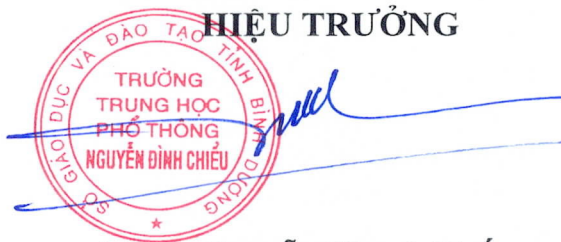 HIỆU TRƯỞNG
SỞ GIÁO DỤC VÀ ĐÀO TẠO TỈNH BÌNH DƯƠNG
TRƯỜNG
TRUNG HỌC
PHỔ THÔNG
NGUYỄN ĐÌNH CHIỂU